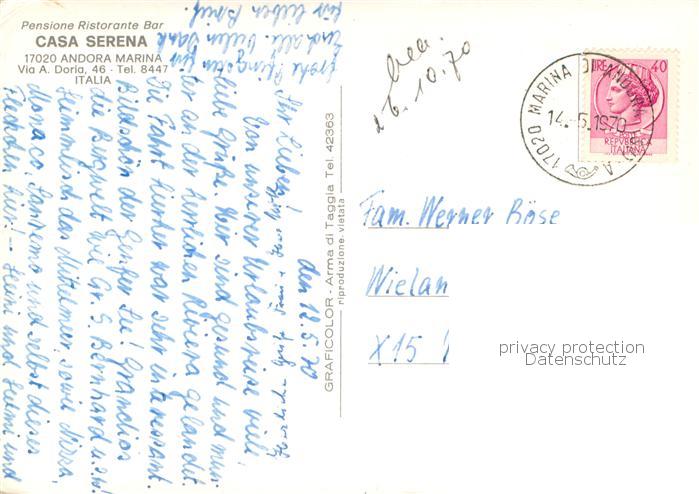 Pensione Ristorante Bar
CASA SERENA
17020 ANDORA MARINA
Via A. Doria, 46 - Tel. 8447
ITALIA
den 12.5.70
Ihr Lieben!
Von unserer Urlaubsreise viele
liebe Grüße. Wir sind gesund und mun-
ter an der herrlichen Riviera gelandet.
Die Fahrt hierher war sehr interessant.
Bildschön der Genfer See! Grandios
die Bergwelt wie Gr. S. Bernhard u.s.w.
Himmlisch das Mittelmeer, sowie Nizza,
Monaco, Sanremo und selbst dieses
Fleckchen hier! – Heini und Helmi und
Frohe Pfingsten für
Euch alle. Vielen Dank
für lieben Brief.
Herzliche Grüße
GRAFICOLOR - Arma di Taggia Tel. 42363
riproduzione vietata
26.10.70
17020 MARINA DI ANDORA
14.-5.1970
LIRE 40
REPVBBLICA
ITALIANA
Fam. Werner Böse
Wielan
X15 1
privacy protection
Datenschutz